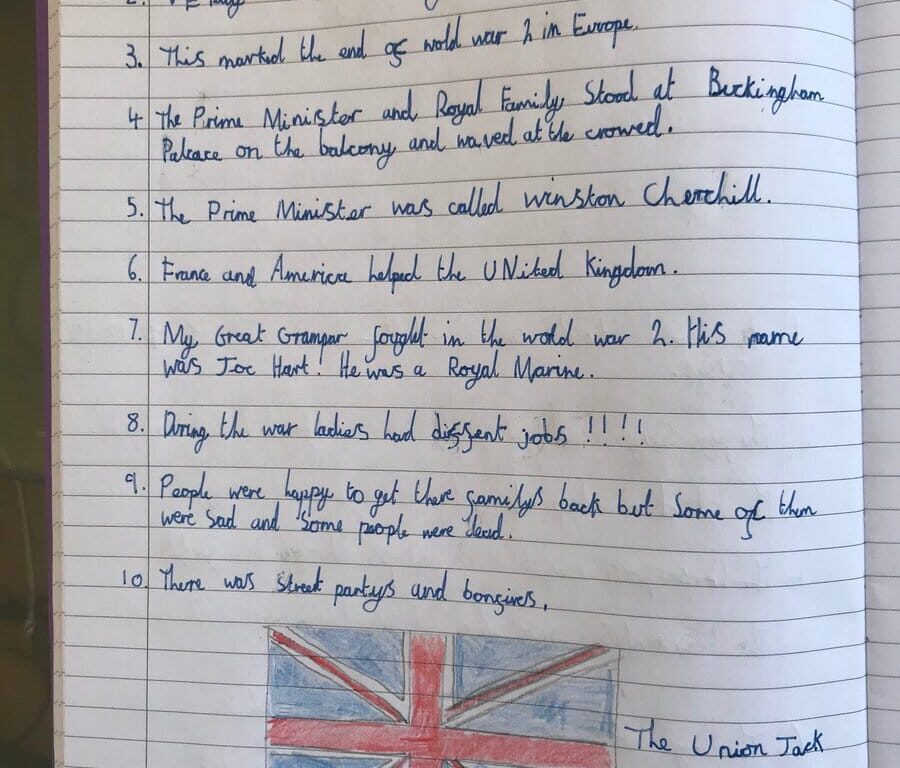 2. VE Day
3. This marked the end of wold war 2 in Europe.
4 The Prime Minister and Royal Family Stood at Buckingham
Palcace on the balcony and waved at the crowed.
5. The Prime Minister was called winston Cherchill.
6. France and America helped the UNited Kingdom.
7. My Great Grampar fought in the wold war 2. His name
was Joe Hart! He was a Royal Marine.
8. During the war ladies had diffent jobs !!!!
9. People were happy to get there familys back but Some of them
were Sad and Some people were dead.
10. There was street partys and bonfires,
The Union Jack